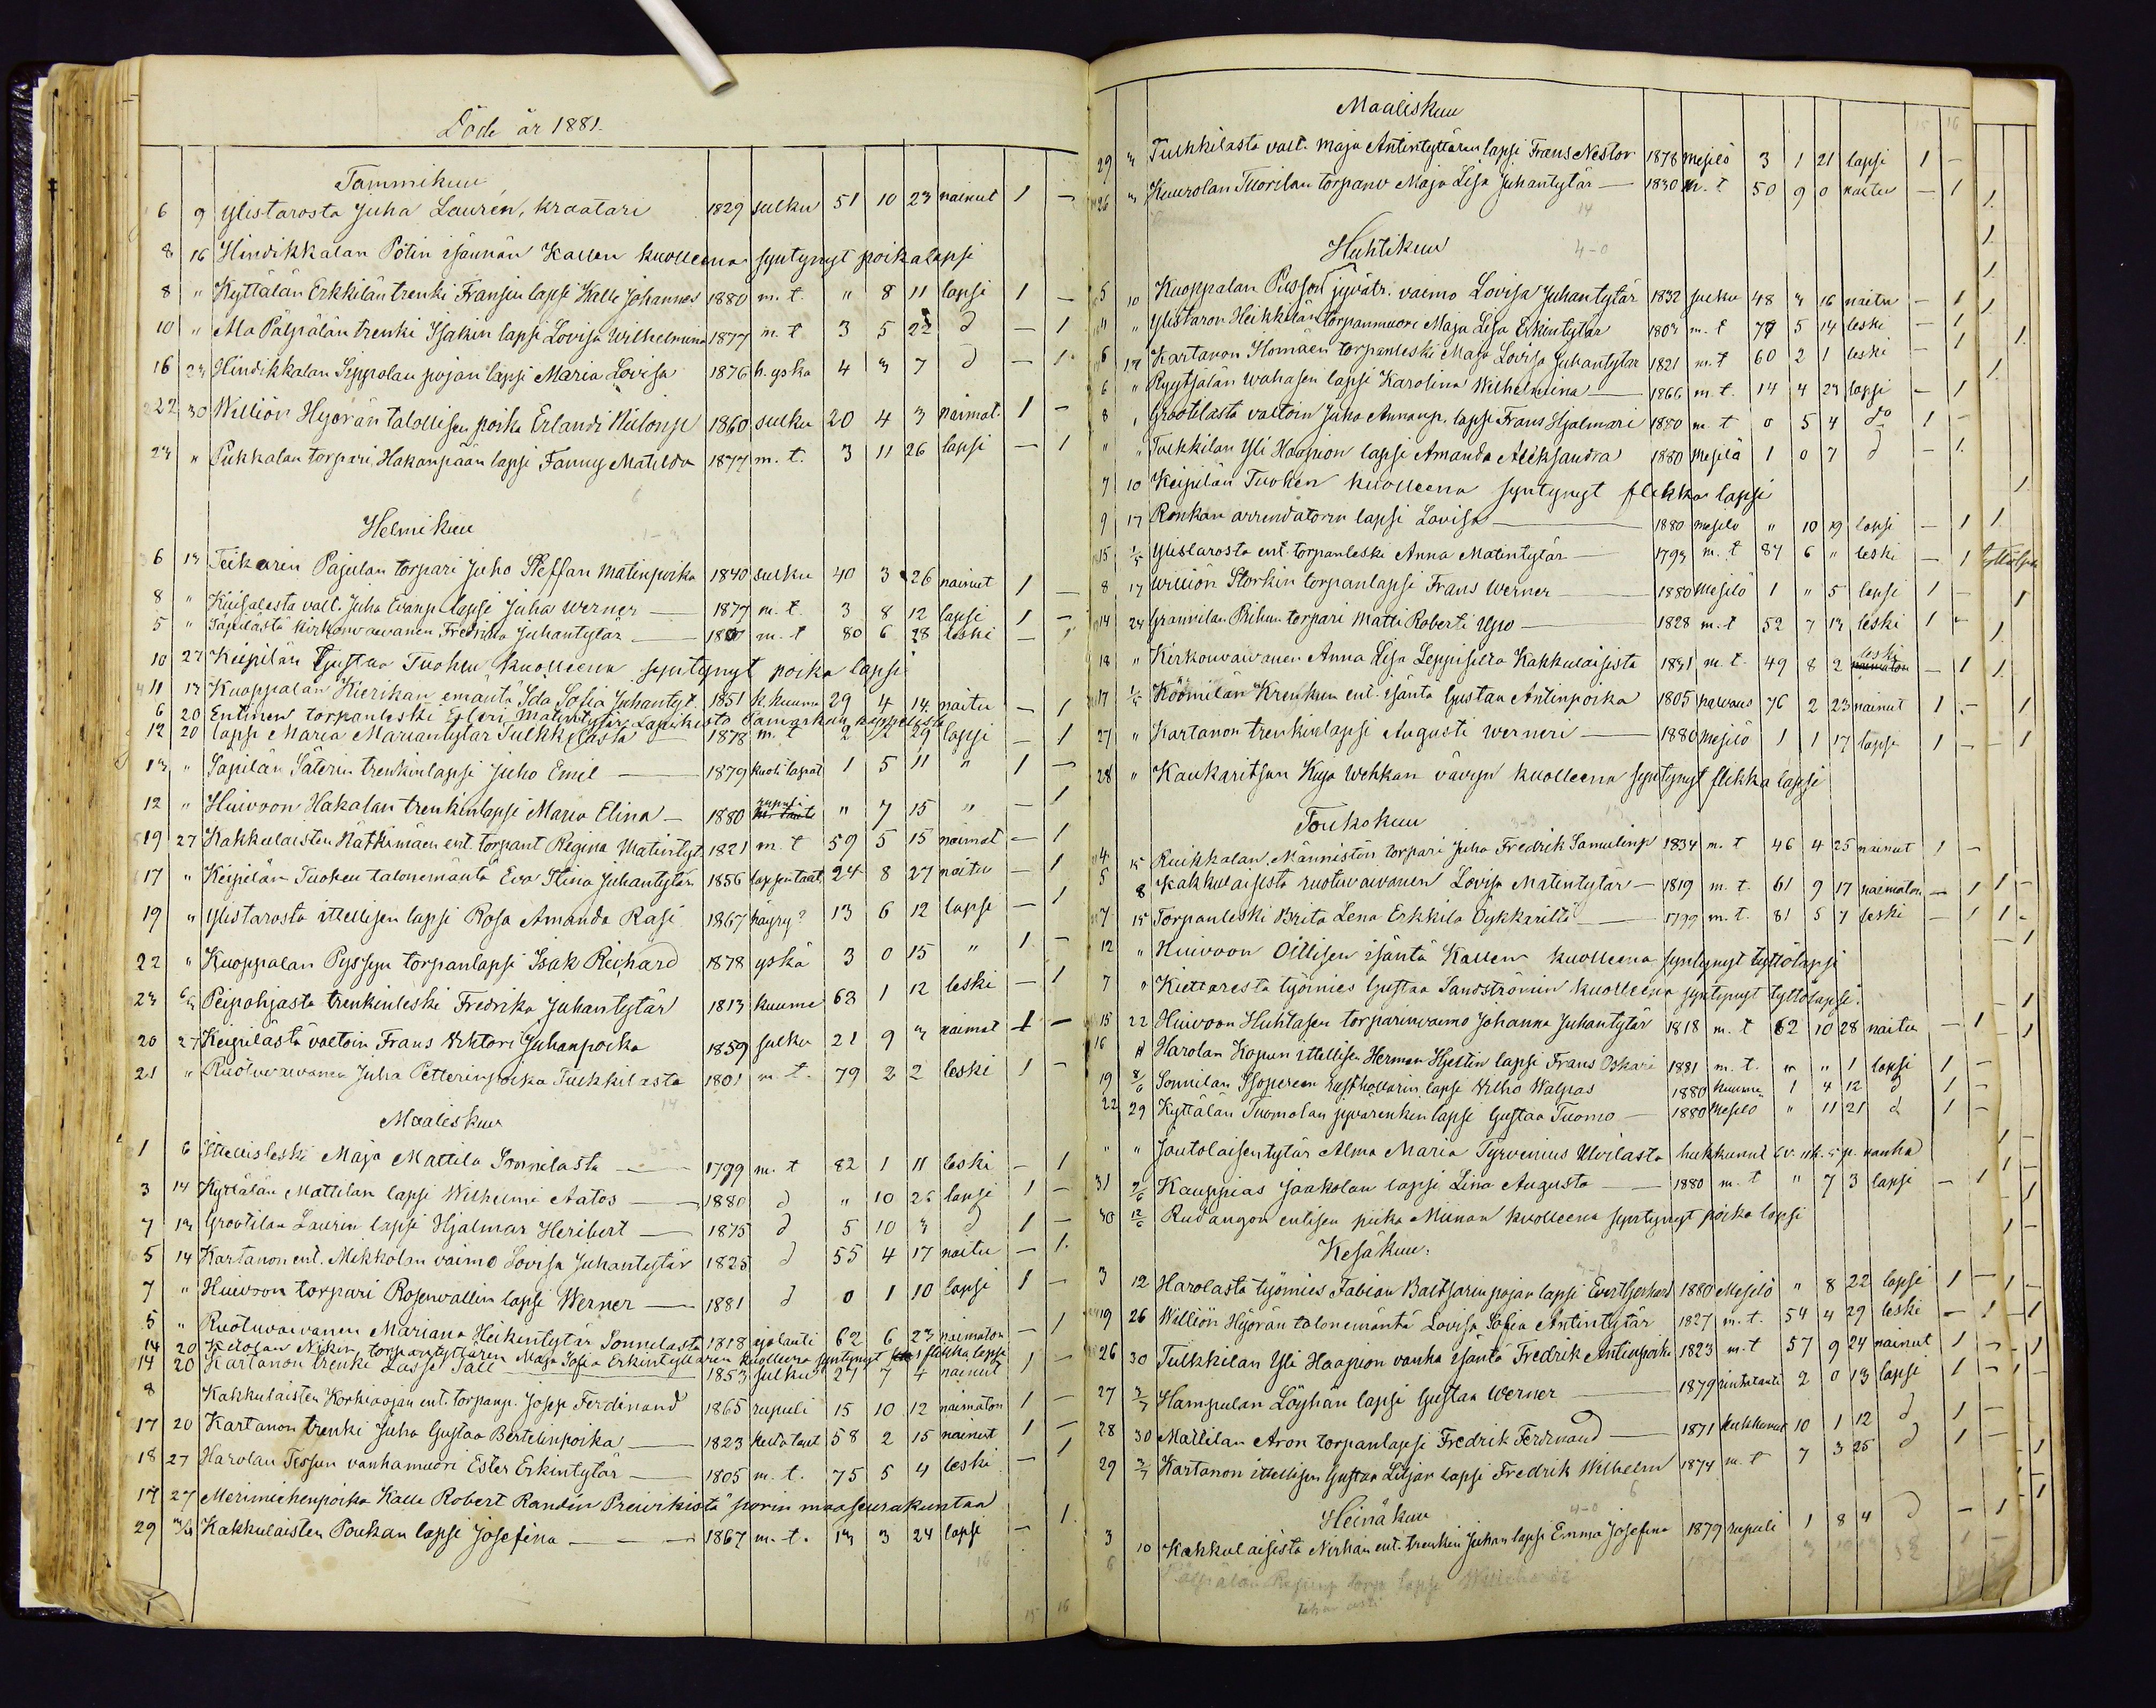 Döde år 1881.
Tammikuu
6 9 Ylistarosta Juha Laurén, kraatari 1829 sulku 51 10 23 nainut 1 –
8 16 Hindikkalan Pötin isännän Kallen kuolleena syntynyt poikalapsi
8 " Kyttälän Erkkilän trenki Fransin lapsi Kalle Johannes 1880 m. t. " 8 11 lapsi 1 –
10 " Ala Pälpälän trenki Isakin lapsi Lovisa Wilhelmina 1877 m. t 3 5 22 d – 1
16 23 Hindikkalan Seppolan pojan lapsi Maria Lovisa 1876 h. yskä 4 3 7 d – 1
22 30 Williön Hyörän talollisen poika Erlandi 1860 sulku 20 4 3 naimat. 1 –
23 " Pukkalan torpari Hakanpään lapsi Fanny Matilda 1877 m. t. 3 11 26 lapsi – 1
Helmikuu
6 13 Teikarin Pajulan torpari Juho Steffan Matinpoika 1840 sulku 40 3 26 nainut 1 –
8 " valt. Juha Evanp. lapsi Juha Werner 1877 m. t. 3 8 12 lapsi 1 –
5 " kirkonvaivanen Fredrika Juhantytär m. t 80 6 28 leski –
10 27 Keipilän Gustaa Tuohen kuolleena syntynyt poika lapsi
11 13 Kuoppalan Kierikan emäntä Ida Sofia Juhantyt. 1851 k. kuume 29 4 14 naitu – 1
6 20 Entinen torpanleski Matintytär
12 20 lapsi Maria Mariantytär Tulkkilasta 1878 m. t 2 29 lapsi – 1
13 " Sapilän Säterin trenkinlapsi Juho Emil 1879 1 5 11 " 1 –
12 " Huivoon Hakalan trenkinlapsi Maria Elina 1880 rupuli " 7 15 " – 1
19 27 Kakkulaisten Kätkimäen ent. torpant Regina Matintyt 1821 m. t 59 5 15 naimat – 1
17 " Keipilän Tuohen talonemäntä Eva Stina Juhantytär 1856 lapsentaut. 24 8 27 naitu – 1
19 " Ylistarosta ittellisen lapsi Rosa Amanda Rasi 1867 häyry? 13 6 12 lapsi – 1
22 " Kuoppalan Pyssyn torpanlapsi Isak Richard 1878 yskä 3 0 15 " 1 –
23 Peipohjasta trenkinleski Fredrika Juhantytär 1813 kuume 68 1 12 leski – 1
20 27 Keipilästä valtoin Frans Viktori Juhanpoika 1859 sulku 21 9 3 naimat 1 –
21 " Ruotuvaivanen Juha Petterinpoika Tulkkilasta 1801 m. t. 79 2 2 leski 1 –
14
Maaliskuu
1 6 Ittellisleski Maja Mattila Sonnilasta 1799 m. t 82 1 11 leski – 1
3 14 Kyttälän Mattilan lapsi Wilhelmi Aatos 1880 d " 10 26 lapsi 1 –
7 13 Grootilan Laurin lapsi Hjalmar Heribert 1875 d 5 10 3 d 1 –
5 14 Kartanon ent. Mikkolan vaimo Lovisa Juhantytär 1825 d 55 4 17 naitu – 1.
7 " Huivoon torpari Rosenvallin lapsi Werner 1881 d 0 1 10 lapsi 1 –
5 " Ruotuvaivanen Mariana Heikintytär Sonnilasta 1818 ajotauti 62 6 23 naimaton – 1
14 20 torpantyttären Maja Sofia Erkintyttären kuolleena syntynyt flikka lapsi
14 20 Kartanon trenki Lasse Säll 1853 sulku 27 7 4 nainut 1 –
8 Kakkulaisten Korkiaojan ent. torpanp. Josep Ferdinand 1865 rupuli 15 10 12 naimaton 1 –
17 20 Kartanon trenki Juha Gustaa Bertelinpoika 1823 58 2 15 nainut 1 –
18 27 Harolan Tessun vanhamuori Ester Erkintytär 1805 m. t. 75 5 4 leski – 1
17 27 Merimiehenpoika Kalle Robert Randén Preivikistä porin maaseurakuntaa
29 Kakkulaisten Poukan lapsi Josefina 1867 m. t. 13 3 24 lapsi – 1
16
15 16
Maaliskuu
29 " Tulkkilasta valt. Maja Antintyttären lapsi Frans Nestor 1878 mesilö 3 1 21 lapsi 1 –
26 " Kuurolan Tuorilan torpanv Maja Lisa Juhantytär 1830 m. t 50 9 0 naitu – 1
14
Huhtikuu
4-0
5 10 Kuoppalan Pusson jyvätr. vaimo Lovisa Juhantytär 1832 sulku 48 3 16 naitu – 1
" Ylistaron Heikkilän torpanmuori Maja Lisa Erkintytär 1803 m. t 77 5 14 leski – 1
6 17 Kartanon Homäen torpanleski Maja Lovisa Juhantytär 1821 m. t 60 2 1 leski – 1
6 " Ryytsälän Wahasen lapsi Karolina Wilhelmina 1866 m. t. 14 4 23 lapsi – 1
8 " Grootilasta valtoin Juho Annanp. lapsi Frans Hjalmari 1880 m. t 0 5 4 do 1 –
" " Tulkkilan Yli Haapion lapsi Amanda Aleksandra 1880 Mesilä 1 0 7 d – 1.
7 10 Keipilän Tuohen kuolleena syntynyt flikka lapsi
9 17 Ronkan arrendatorin lapsi Lovisa 1880 mesilö " 10 19 lapsi – 1
15 1/5 Ylistarosta ent. torpanleski Anna Matintytär 1793 m. t 87 6 " leski – 1
8 17 Williön Storkin torpanlapsi Frans Werner 1880 Mesilö 1 " 5 lapsi 1 –
14 24 Grannilan Rihun torpari Matti Roberti Uso 1828 m. t 52 7 13 leski 1 –
18 " Kirkonvaivanen Anna Lisa Leppisilta Kakkulaisista 1831 m. t. 49 8 2 leski – 1
17 1/5 Köömilän Krenkun ent. isäntä Gustaa Antinpoika 1805 halvaus 76 2 23 nainut 1 –
27 " Kartanon trenkinlapsi Augusti Werneri 1880 Mesilö 1 1 17 lapsi 1 –
28 " Kaukaritsan Kujo Wehkan vävyn kuolleena syntynyt flikka lapsi
Toukokuu
3-3
4 15 Ruikkalan Männistön torpari Juha Fredrik Samulinp 1834 m. t 46 4 25 nainut 1 –
5 8 Kakkulaisista ruotuvaivanen Lovisa Matintytär 1819 m. t. 61 9 17 naimaton – 1
7 15 Torpanleski Brita Lena Erkkilä 1799 m. t. 81 5 7 leski – 1
12 " Huivoon Ollisen isäntä Kallen kuolleena syntynyt tyttölapsi
7 " Kiettaresta työmies Gustaa Sandströmin kuolleena syntynyt tyttölapsi.
15 22 Huivoon Huhtasen torparinvaimo Johanna Juhantytär 1818 m. t 62 10 28 naitu – 1
16 Harolan Kopun ittellisen Herman Hjeltin lapsi Frans Oskari 1881 m. t. " " 1 lapsi 1 –
19 8/6 Sonnilan Isopereen rusthollarin lapsi Vilho Walpas 1880 kuume 1 4 12 d 1 –
22 29 Kyttälän Tuomolan jyvärenkin lapsi Gustaa Tuomo 1880 Mesilö " 11 21 d 1 –
" " Joutolaisentytär Alma Maria Tyrvenius Ulvilasta hukkunut 6 v. 11 k. 5 p. vanha
31 Kauppias Jaakolan lapsi Lina Augusta 1880 m. t " 7 3 lapsi – 1
30 12/6 Rudangon entisen piika Miinan kuolleena syntynyt poika lapsi
8
Kesäkuu.
3 12 Harolasta työmies Fabian Baltsarin pojan lapsi Evert Gerhard 1880 Mesilö " 8 22 lapsi 1 –
19 26 Williön Hyörän talonemäntä Lovisa Sofia Antintytär 1827 m. t. 54 4 29 leski – 1
26 30 Tulkkilan Yli Haapion vanha isäntä Fredrik Antinpoika 1823 m. t 57 9 24 nainut 1 –
27 3/7 Hampulan Löyhän lapsi Gustaa Werner 1879 rintatauti 2 0 13 lapsi 1 –
28 30 Mattilan Aron torpanlapsi Fredrik Ferdinand 1871 hukkunut 10 1 12 d 1 –
29 3/7 Kartanon ittellisen Gustaa Liljan lapsi Fredrik Wilhelm 1874 m. t 7 3 25 d 1 –
6
Heinäkuu
4-0
3 10 Kakkulaisista Nirhan ent. trenkin Juhan lapsi Emma Josefina 1879 rupuli 1 8 4 d – 1
6 Pälpälän torp lapsi